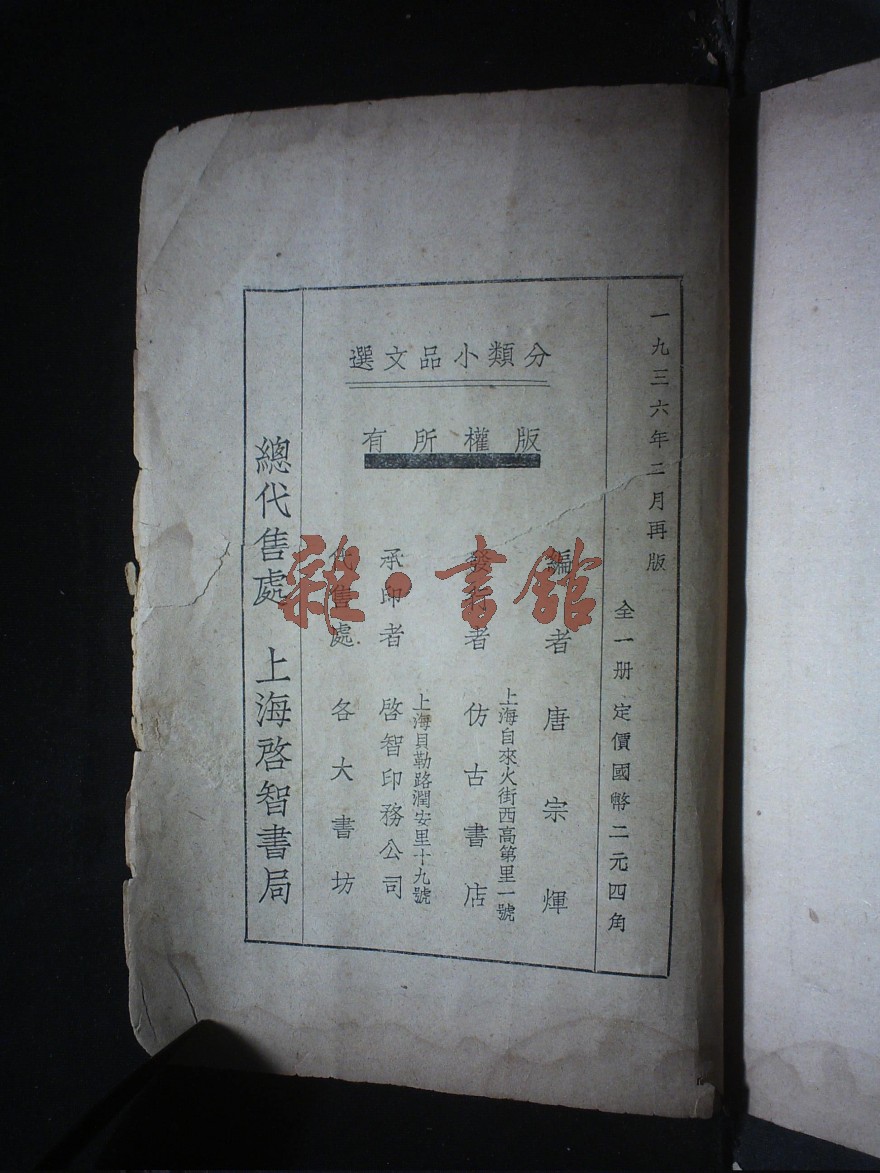 一九三六年二月再版
全一册 定價國幣二元四角
分類小品文選
版權所有
編者 唐宗煇
發行者 仿古書店
上海自來火街西高第里一號
承印者 啓智印務公司
上海貝勒路潤安里十九號
代售處 各大書坊
總代售處 上海啓智書局
雜·書館